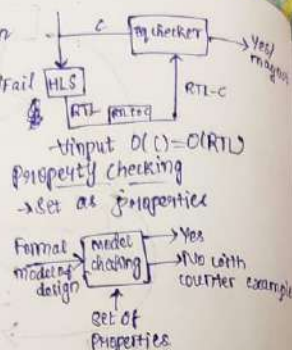 C
eq checker
Yes/
Fail
HLS
RTL
RTL-C
∀input O(C)=O(RTL)
Property checking
→ Set as properties
Formal
model of
design
model
checking
→ Yes
→ No with
counter example
Set Of
Properties